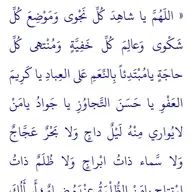 « اللّهُمَّ يا شاهِدَ كُلِّ نَجْوى وَمَوْضِعَ كُلِّ
شَكْوى وَعالِمَ كُلِّ خَفِيَّةٍ وَمُنْتَهى كُلِّ
حاجَةٍ يامُبْتَدِئاً بِالنِّعَمِ عَلى العِبادِ يا كَريمَ
العَفْوِ يا حَسَنَ التَّجاوُزِ يا جَوادُ يامَنْ
لايُواري مِنْهُ لَيْلٌ داجٍ وَلا بَحْرٌ عَجّاجٌ
وَلا سَّماء ذاتُ ابْراجٍ وَلا ظُلَمٌ ذاتُ